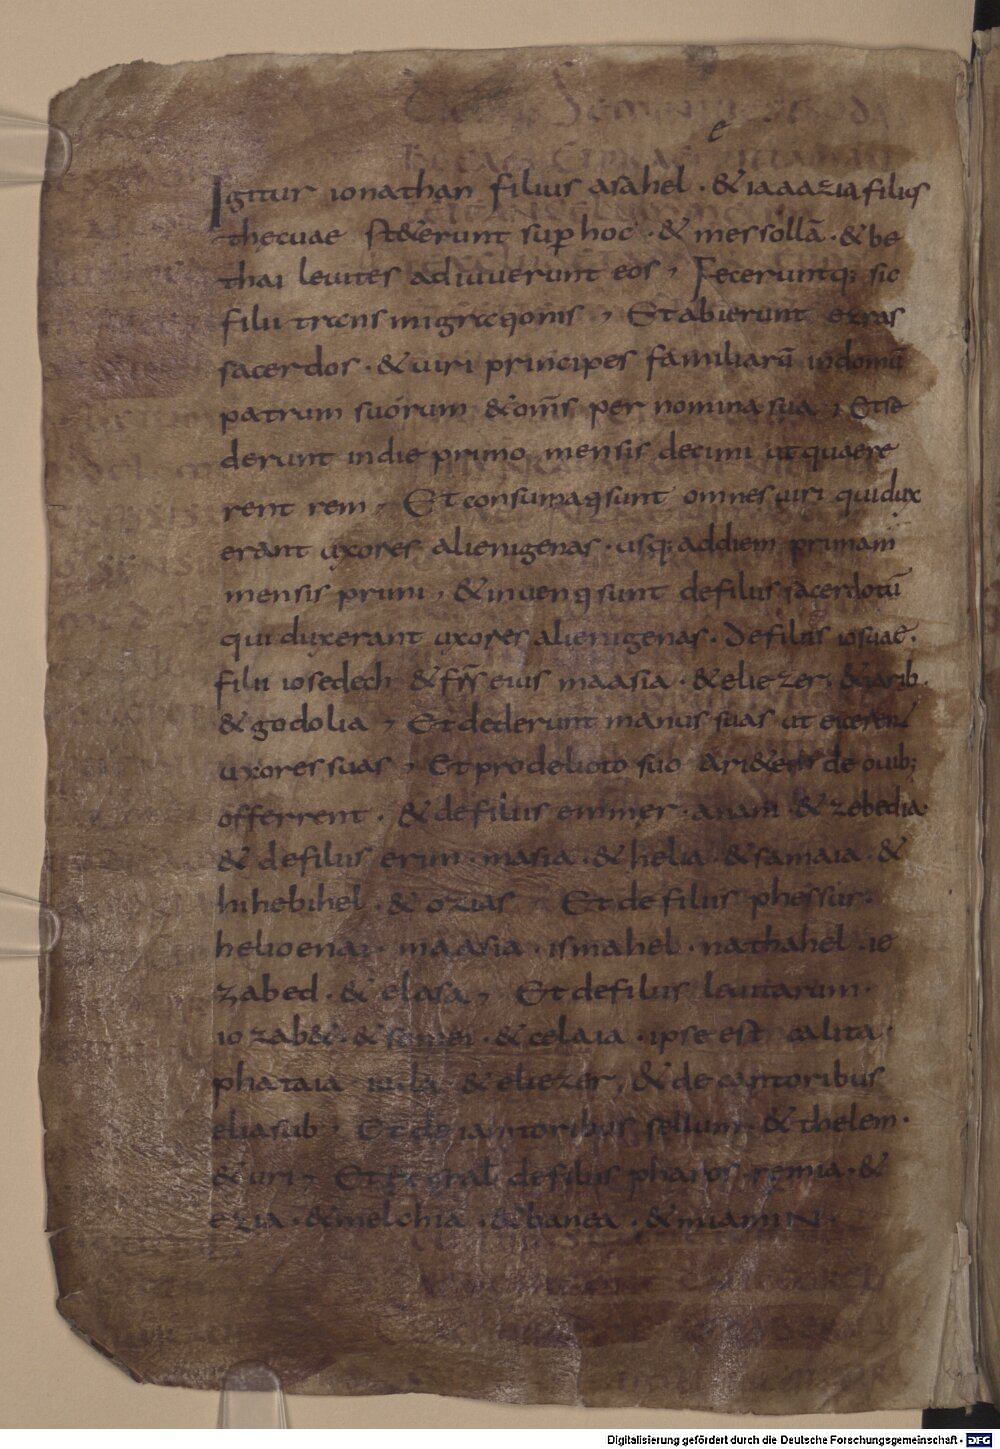 Igitur ionathan filius asahel · & iaaazia filius
thecuae st&erunt sup hoc · & messollã · & be
thai leuites adiuuerunt eos , Feceruntq; sic
filii transmigrationis , Et abierunt ezras
sacerdos · & uiri principes familiarũ indomũ
patrum suorum & om̃s per nomina sua , Etse
derunt indie primo mensis decimi ut quaere
rent rem , Et consumati sunt omnes uiri quidux
erant uxores alienigenas · usq; addiem primam
mensis primi , & inuenti sunt defiliis sacerdotũ
qui duxerant uxores alienigenas · De filiis iosuae ·
filii iosedech & frs̃ eius maasia · & eliezer · & iarib ·
& godolia , Et dederunt manus suas ut eicerent
uxores suas , Et prodelicto suo ari&em de ouib;
offerrent · & defiliis emmer · anani & zebedia ·
& defiliis erim · masia · & helia · & samaia · &
hihebihel · & ozias , Et de filiis phessur ·
helioenai · maasia · ismahel · nathahel · io
zabed · & elasa , Et defiliis leuitarum ·
iozab& · & semei · & celaia · ipse est calita ·
phataia iuda & eliezer , & de cantoribus
eliasub , Et de ianitoribus sellum · & thelem ·
& uri , Et defiliis pharos remia · &
ezia · & melchia · & banea · & miamin
Digitalisierung gefördert durch die Deutsche Forschungsgemeinschaft - DFG